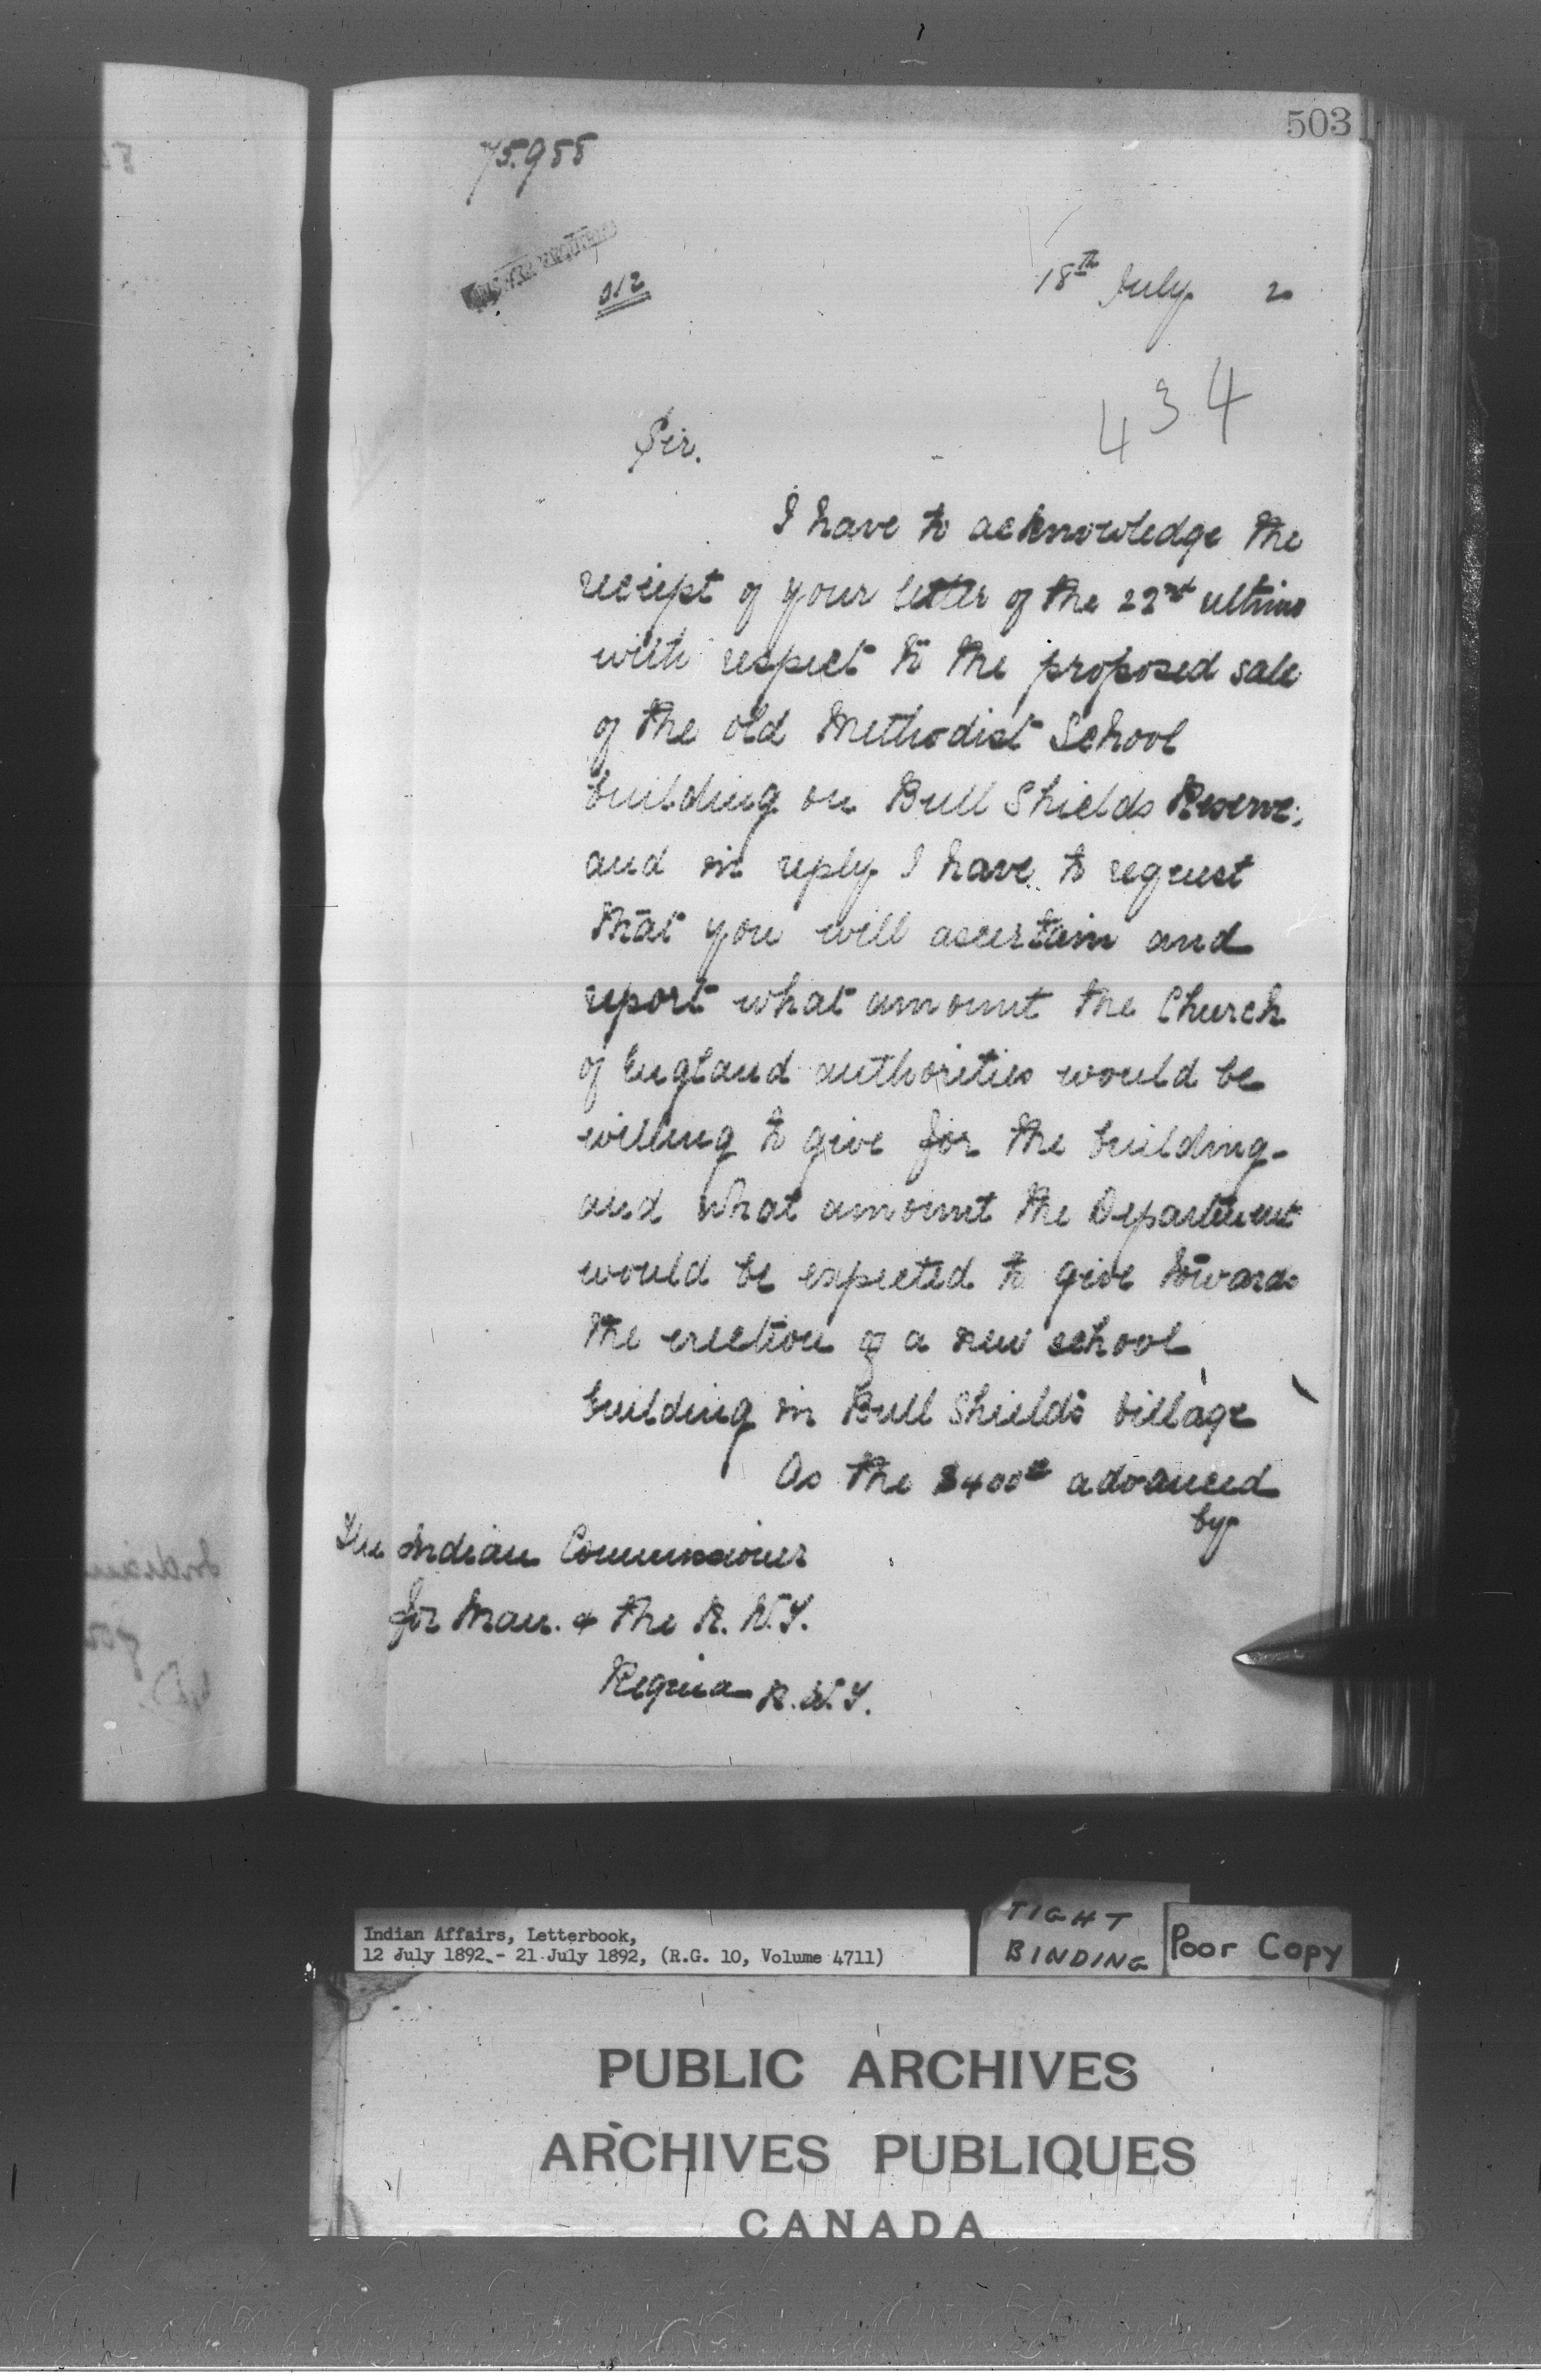 503
75.955
18th July 2
434
Sir.
I have to acknowledge the
reciept of your letter of the 22nd ultimo
with respect to the proposed sale
of the old Methodist School
building on Bull Shields Reserve;
and in reply I have to request
that you will ascertain and
report what amount the Church
of England authorities would be
willing to give for the building
and what amount the Department
would be expected to give towards
the erection of a new school
building in Bull Shields village
As the $400 advanced
by
The Indian Commissioner
for Man. & the N.W.T.
Regina N.W.T.
Indian Affairs, Letterbook,
12 July 1892 - 21 July 1892, (R.G. 10, Volume 4711)
TIGHT
BINDING
Poor Copy
PUBLIC ARCHIVES
ARCHIVES PUBLIQUES
CANADA